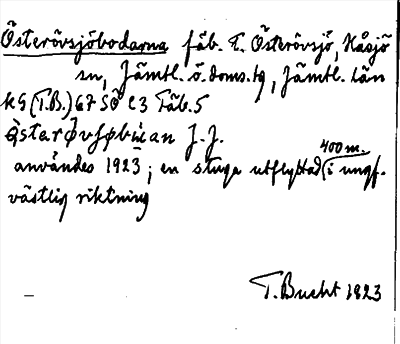 Österövsjöbodarna fäb. t. Österövsjö, Håsjö
sn, Jämtl. ö. doms. tg, Jämtl. län
KG (T.B.) 67 SÖ e3 Fäb. 5
J. J.
användes 1923; en stuga utflyttad 400 m. i ungf.
västlig riktning
T. Bucht 1923